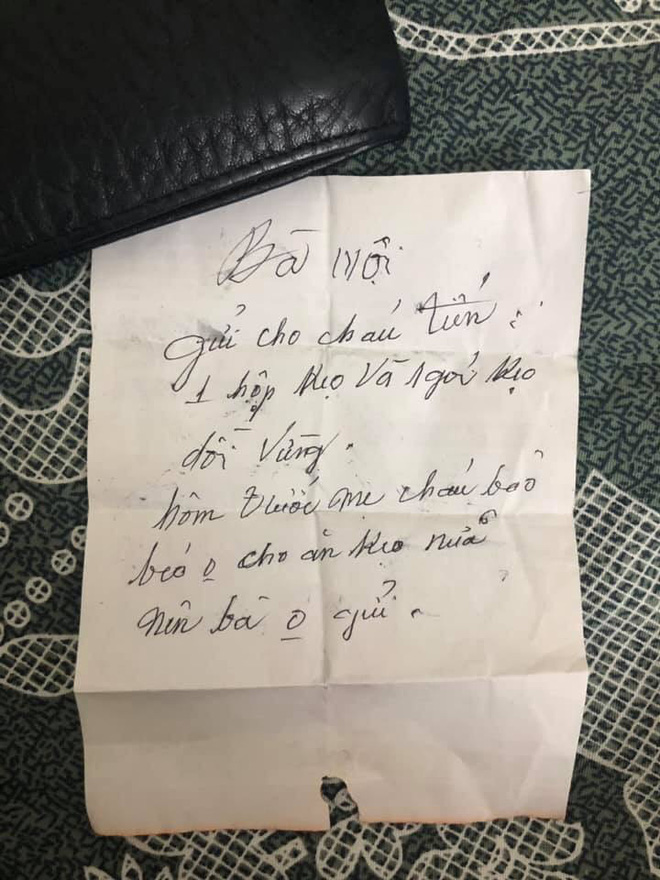 Bà Nội
gửi cho cháu Tiến :
1 hộp kẹo và 1 gói kẹo
dồi vừng.
hôm trước mẹ cháu bảo
béo o cho ăn kẹo nữa
nên bà o gửi.